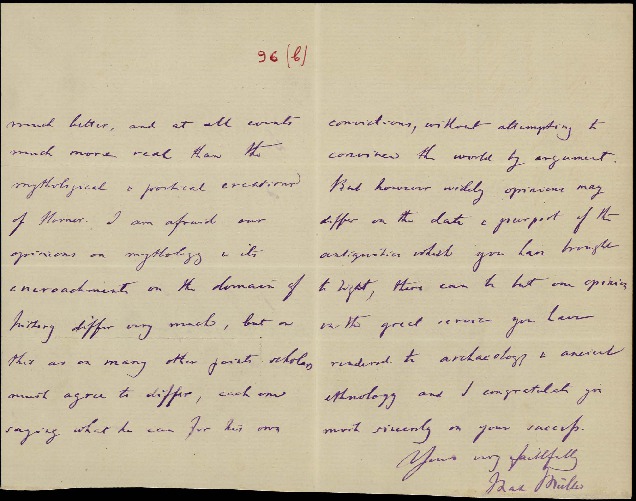 96 (b)
much better, and at all events
much more real than the
mythological & poetical creations
of Homer. I am afraid our
opinions on mythology & its
encroachments on the domain of
history differ very much, but on
this as on many other points scholars
must agree to differ, each one
saying what he can for his own
convictions, without attempting to
convince the world by argument.
But however widely opinions may
differ on the date & purport of the
antiquities which you have brought
to light, there can be but one opinion
on the great service you have
rendered to archaeology & ancient
ethnology and I congratulate you
most sincerely on your success.
Yours very faithfully
Max Müller